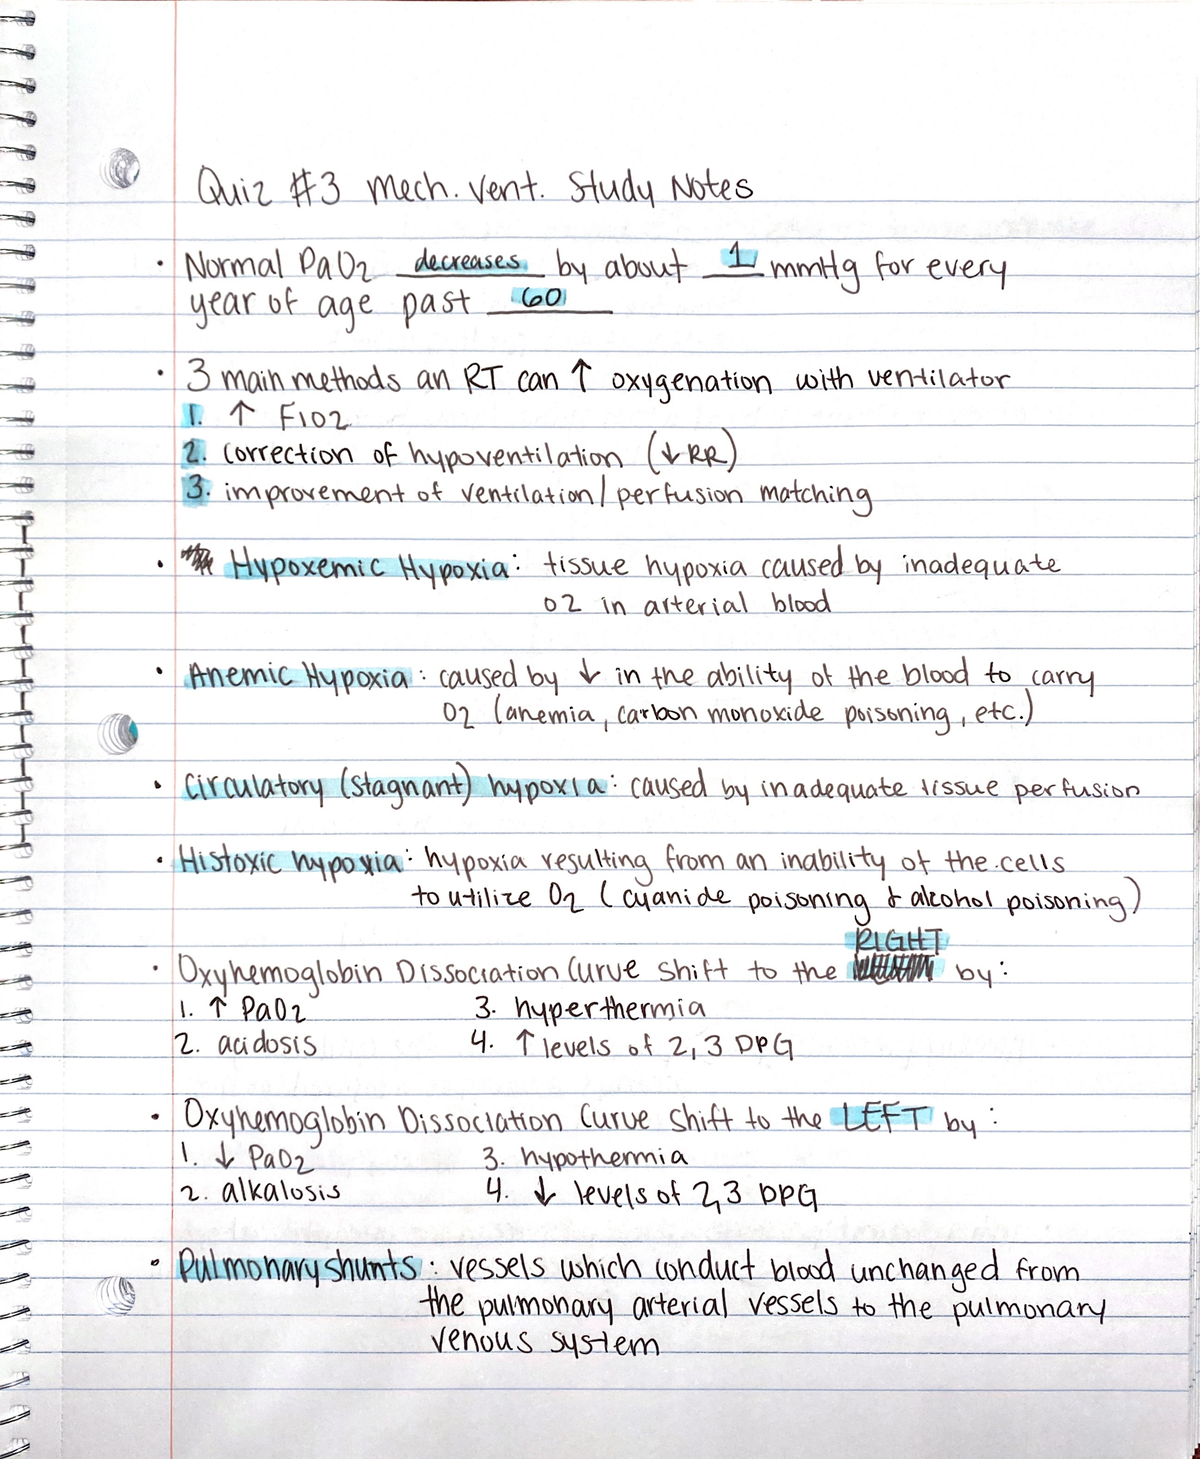 Quiz #3 Mech. Vent. Study Notes
• Normal PaO2 decreases by about 1 mmHg for every
year of age past 60
• 3 main methods an RT can ↑ oxygenation with ventilator
1. ↑ FIO2
2. correction of hypoventilation (↓ RR)
3. improvement of ventilation/perfusion matching
• Hypoxemic Hypoxia: tissue hypoxia caused by inadequate
O2 in arterial blood
• Anemic Hypoxia: caused by ↓ in the ability of the blood to carry
O2 (anemia, carbon monoxide poisoning, etc.)
• Circulatory (stagnant) hypoxia: caused by inadequate tissue perfusion
• Histoxic hypoxia: hypoxia resulting from an inability of the cells
to utilize O2 (cyanide poisoning & alcohol poisoning)
RIGHT
• Oxyhemoglobin Dissociation Curve shift to the by:
1. ↑ PaO2 3. hyperthermia
2. acidosis 4. ↑ levels of 2,3 DPG
• Oxyhemoglobin Dissociation Curve shift to the LEFT by:
1. ↓ PaO2 3. hypothermia
2. alkalosis 4. ↓ levels of 2,3 DPG
• Pulmonary shunts: vessels which conduct blood unchanged from
the pulmonary arterial vessels to the pulmonary
venous system